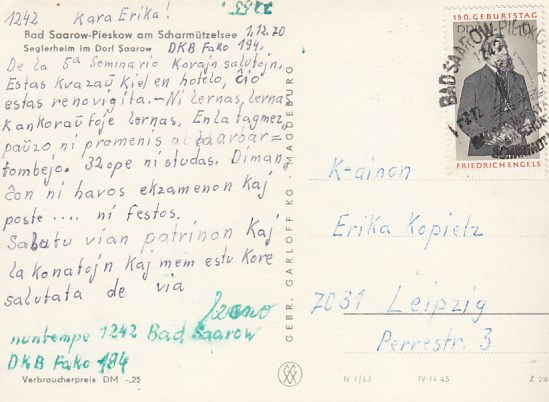 1242 Kara Erika!
Bad Saarow-Pieskow am Scharmützelsee
1.12.70
Seglerheim im Dorf Saarow
DKB Fako 194.
De la 5ª Seminario Korajn salutojn.
Estas kvazaŭ kiel en hotelo, ĉio
estas renovigita. – Ni lernas, lernas
kan koraŭfoje lernas. En la tagmez
paŭzo ni promenis al
tombejo. 32ope ni studas. Diman
ĉon ni havos ekzamenon kaj
poste .... ni festos.
Salutu vian patrinon kaj
la konatojn kaj mem estu kore
salutata de via
nuntempe 1242 Bad Saarow
DKB Fako 194
Verbraucherpreis DM -,25
GEBR. GARLOFF KG, MAGDEBURG
150. GEBURTSTAG
DDR
FRIEDRICH ENGELS
BAD SAAROW-PIESKOW
K-ainon
Erika Kopietz
7031 Leipzig
Perrestr. 3
N 1/63
IV-14-45